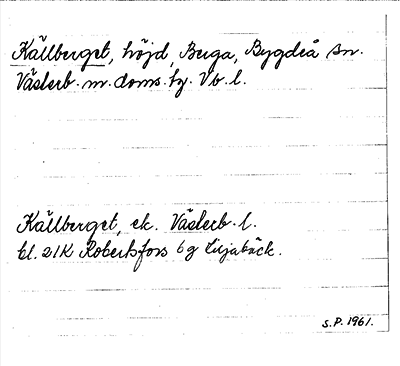 Källberget, höjd, Berga, Bygdeå sn.
Västerb. m. doms. hg. Vb. l.
Källberget, ek. Västerb. l.
bl. 21K Robertsfors 6g Liljabäck.
S.P. 1961.